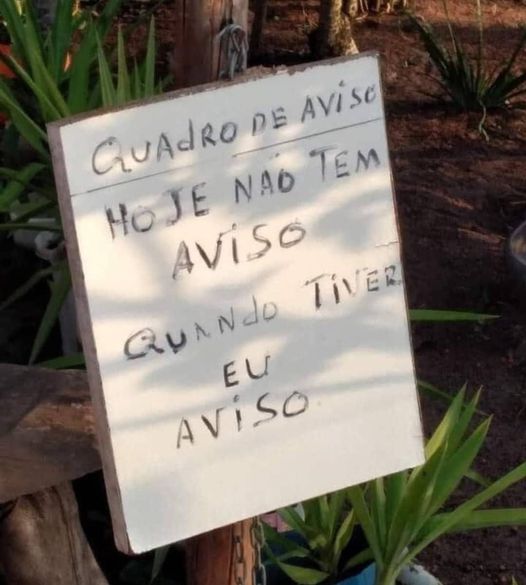 QUADRO DE AVISO
HOJE NÃO TEM
AVISO
QUANDO TIVER
EU
AVISO